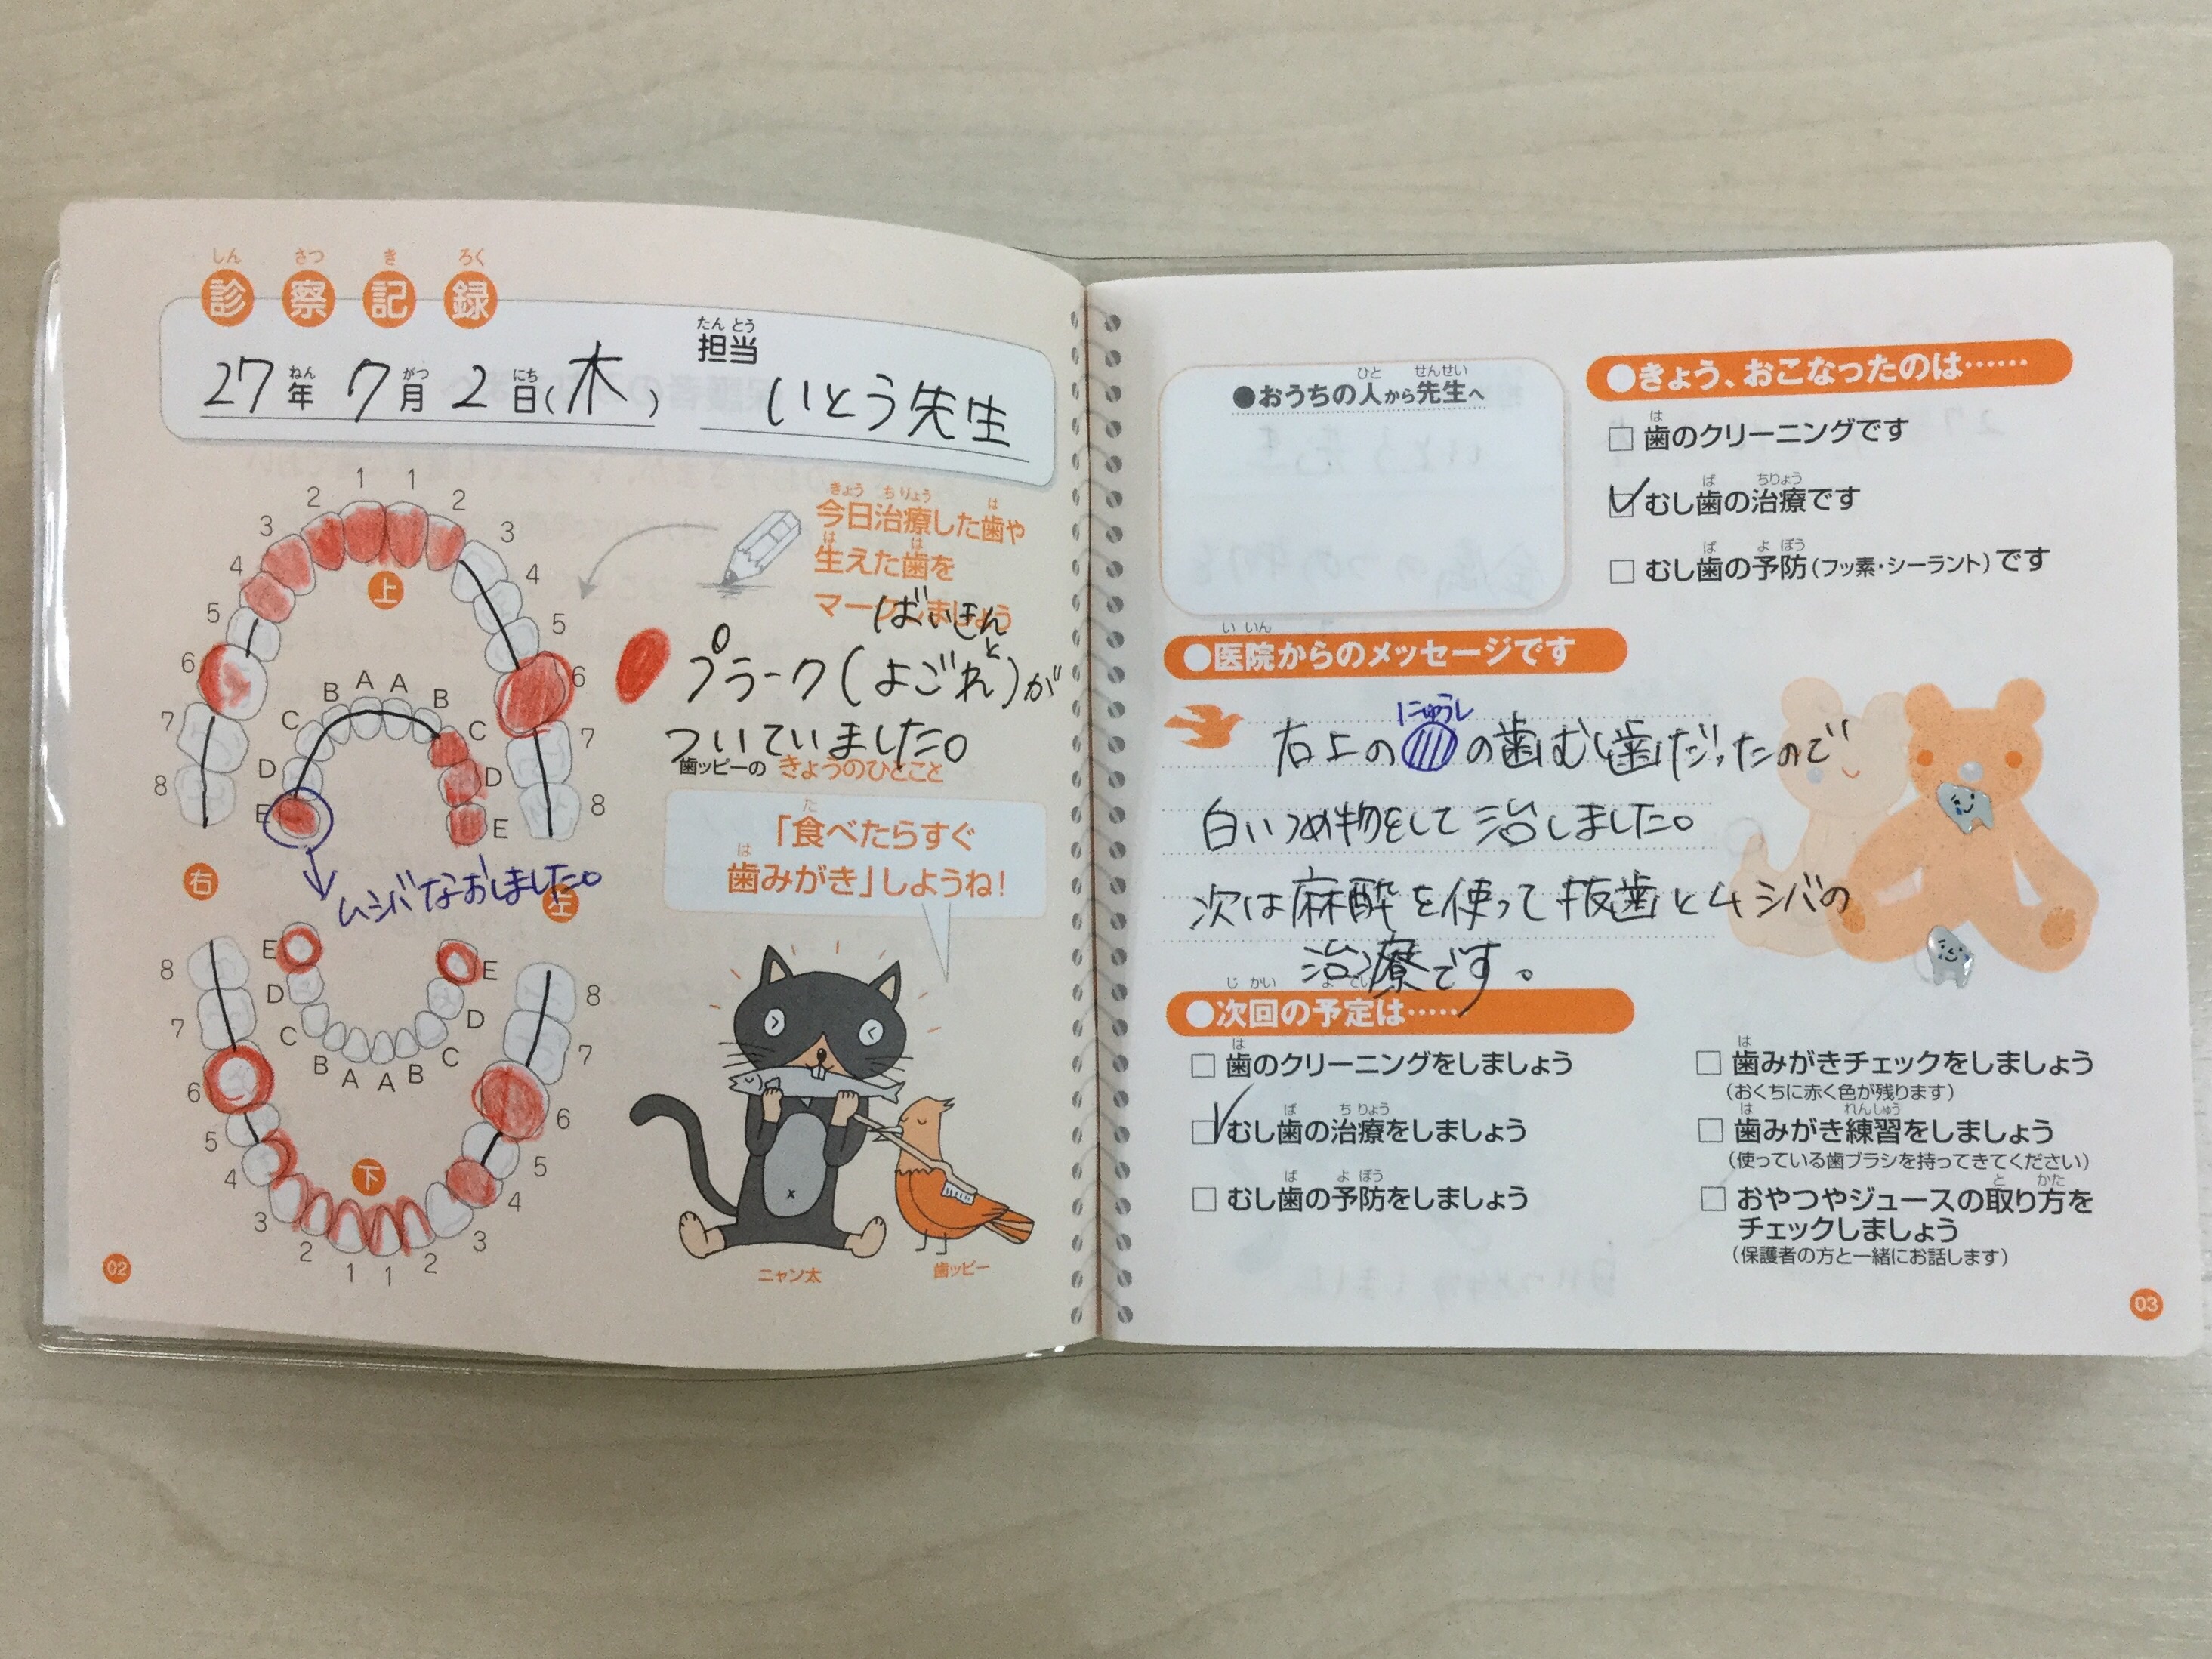 診察記録
しん さつ き ろく
27年 7月 2日(木) 担当 いとう先生
ねん がつ にち たんとう
今日治療した歯や
生えた歯を
マークしましょう
ばいきんと
プラーク(よごれ)が
ついていました。
歯ッピーの きょうのひとこと
「食べたらすぐ
歯みがき」しようね!
1 1
2 2
3 3
4 4
5 5
6 6
7 7
8 8
上
A A
B B
C C
D D
E E
右 左
ムシバなおしました。
E E
D D
C C
B A A B
8 8
7 7
6 6
5 5
4 4
3 3
2 2
1 1
下
ニャン太
歯ッピー
02
●おうちの人から先生へ
ひと せんせい
●きょう、おこなったのは……
□ 歯のクリーニングです
☑ むし歯の治療です
□ むし歯の予防(フッ素・シーラント)です
●医院からのメッセージです
いいん
にゅうし
右上の の歯むし歯だったので
白いつめ物をして治しました。
次は麻酔を使って抜歯とムシバの
治療です。
●次回の予定は……
じかい よてい
□ 歯のクリーニングをしましょう
☑ むし歯の治療をしましょう
□ むし歯の予防をしましょう
□ 歯みがきチェックをしましょう
(おくちに赤く色が残ります)
□ 歯みがき練習をしましょう
(使っている歯ブラシを持ってきてください)
□ おやつやジュースの取り方を
チェックしましょう
(保護者の方と一緒にお話します)
03